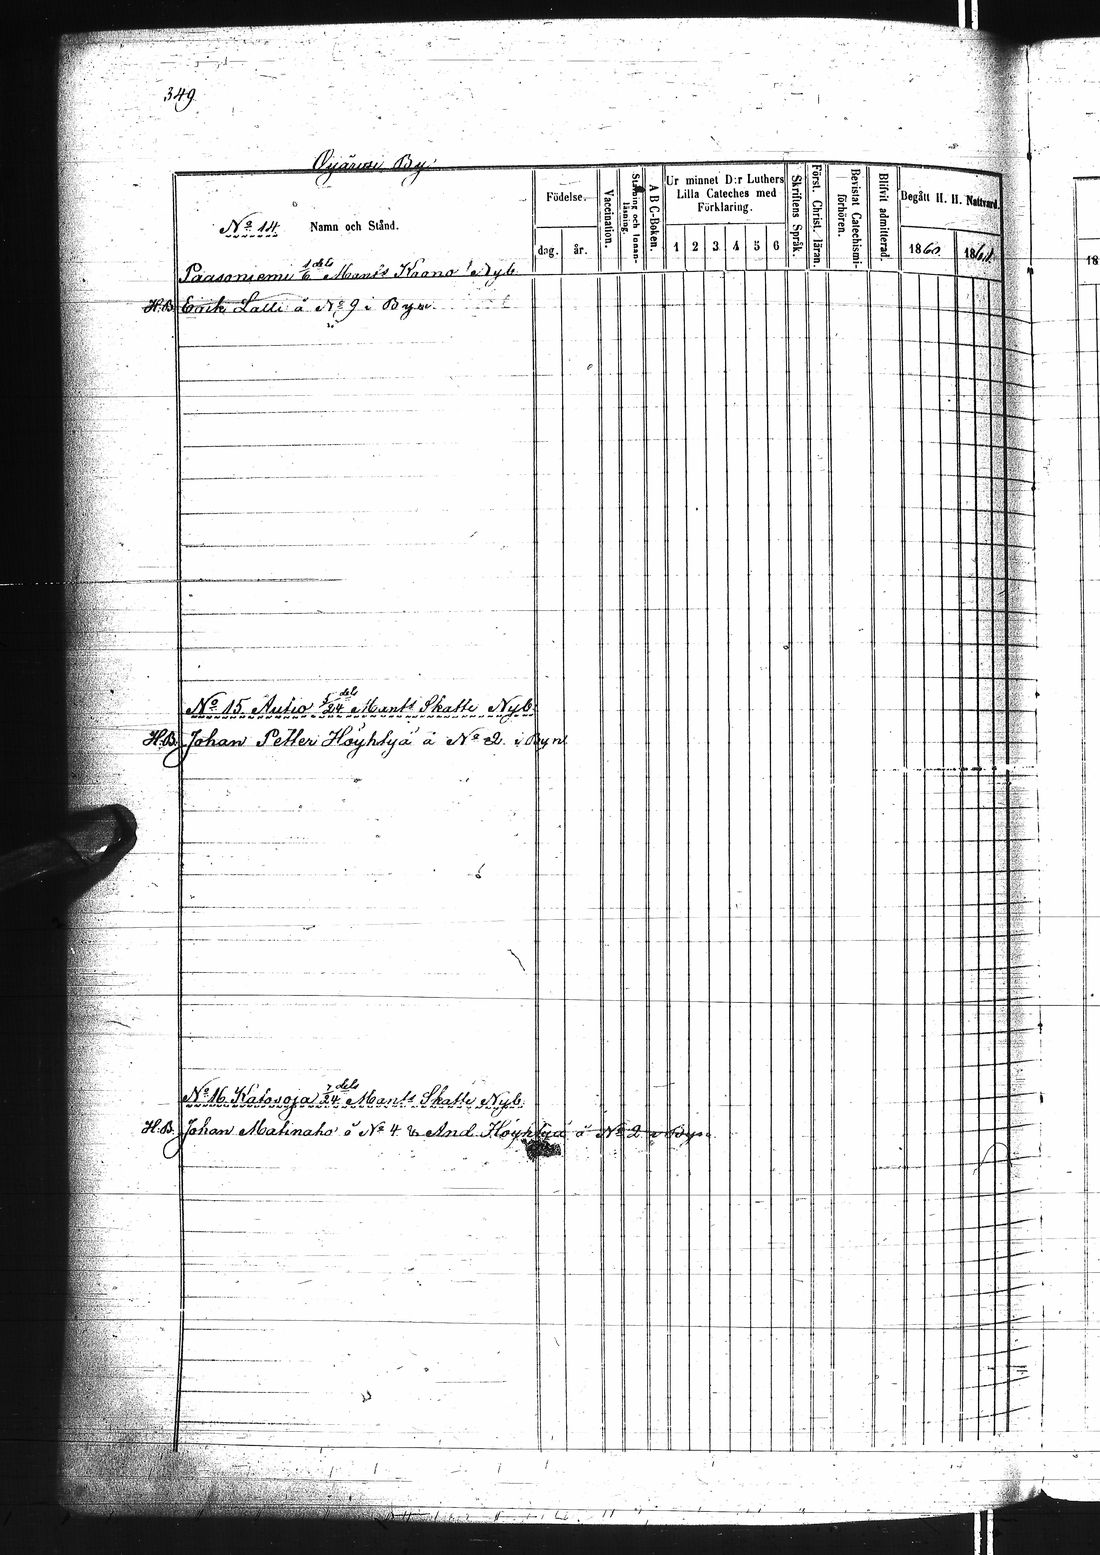 349
Oyärvi By.
No 14 Namn och Stånd.
Födelse.
dag. år.
Vaccination.
Stafning och Innanläsning.
A B C-Boken.
Ur minnet D:r Luthers Lilla Cateches med Förklaring.
1 2 3 4 5 6
Skriftens Språk.
Först. Christ. läran.
Bevistat Catechismiförhören.
Blifvit admitterad.
Begått H. H. Nattvard.
1860. 1861.
18
Paasoniemi 1/6 dels Mantls Krono Nyb.
H.B. Erik Lalli å No 9 i Byn.
No 15 Autio 5/24 dels Mantls Skatte Nyb.
H.B. Johan Petter Höyhtyä å No 2. i Byn
No 16 Katosoja 7/24 dels Mantls Skatte Nyb.
H.B. Johan Matinaho å No 4 & And. Höyhtyä å No 2 i Byn.